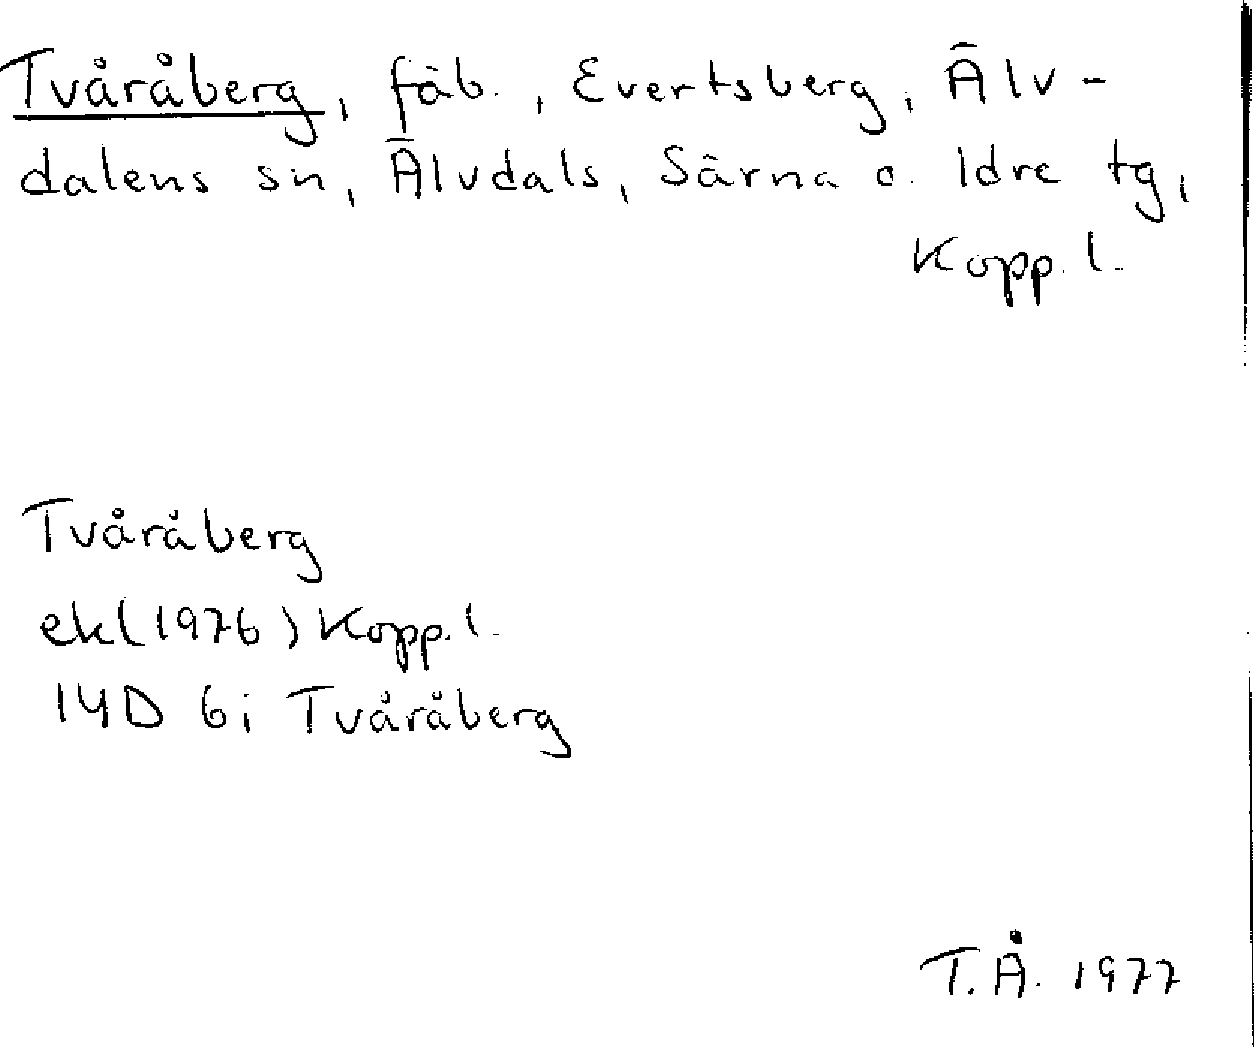 Tvåråberg, fäb., Evertsberg, Älv-
dalens sn, Älvdals, Särna o. Idre tg,
Kopp. l.
Tvåråberg
ekl(1976) Kopp. l.
14D 6i Tvåråberg
T.Å. 1977